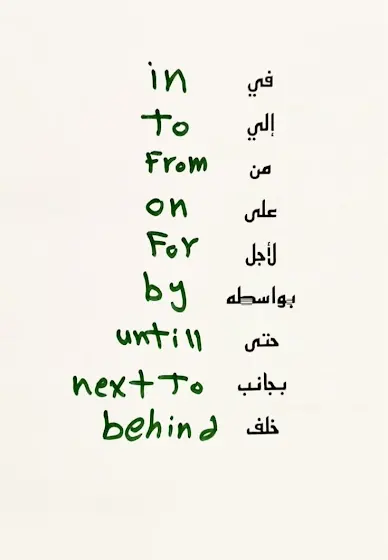 in في
to إلي
From من
on على
For لأجل
by بواسطه
untill حتى
next to بجانب
behind خلف